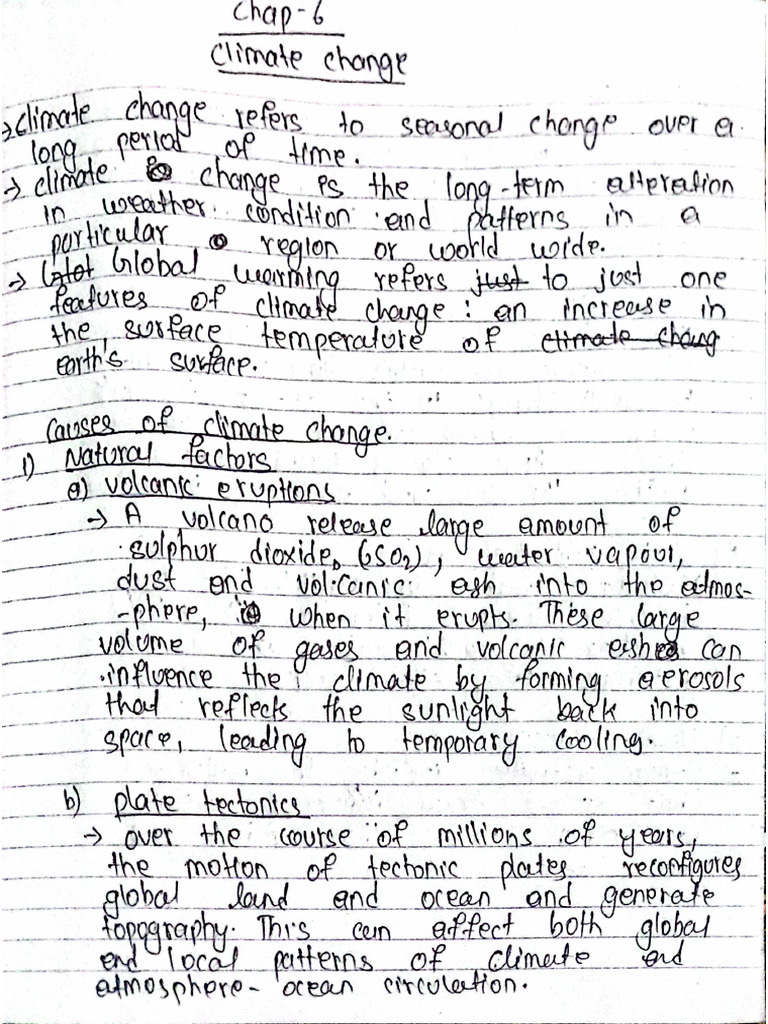 Chap-6
Climate change
→ climate change refers to seasonal change over a
long period of time.
→ climate change is the long-term alteration
in weather condition and patterns in a
particular region or world wide.
→ Global warming refers just to just one
features of climate change: an increase in
the surface temperature of climate chang
earth's surface.
Causes of climate change.
1) Natural factors
a) volcanic eruptions
→ A volcano release large amount of
sulphur dioxide, (SO2), water vapour,
dust and volcanic ash into the atmos-
-phere, when it erupts. These large
volume of gases and volcanic ashes can
influence the climate by forming aerosols
that reflects the sunlight back into
space, leading to temporary cooling.
b) plate tectonics
→ over the course of millions of years,
the motion of tectonic plates reconfigures
global land and ocean and generate
topography. This can affect both global
and local patterns of climate and
atmosphere- ocean circulation.